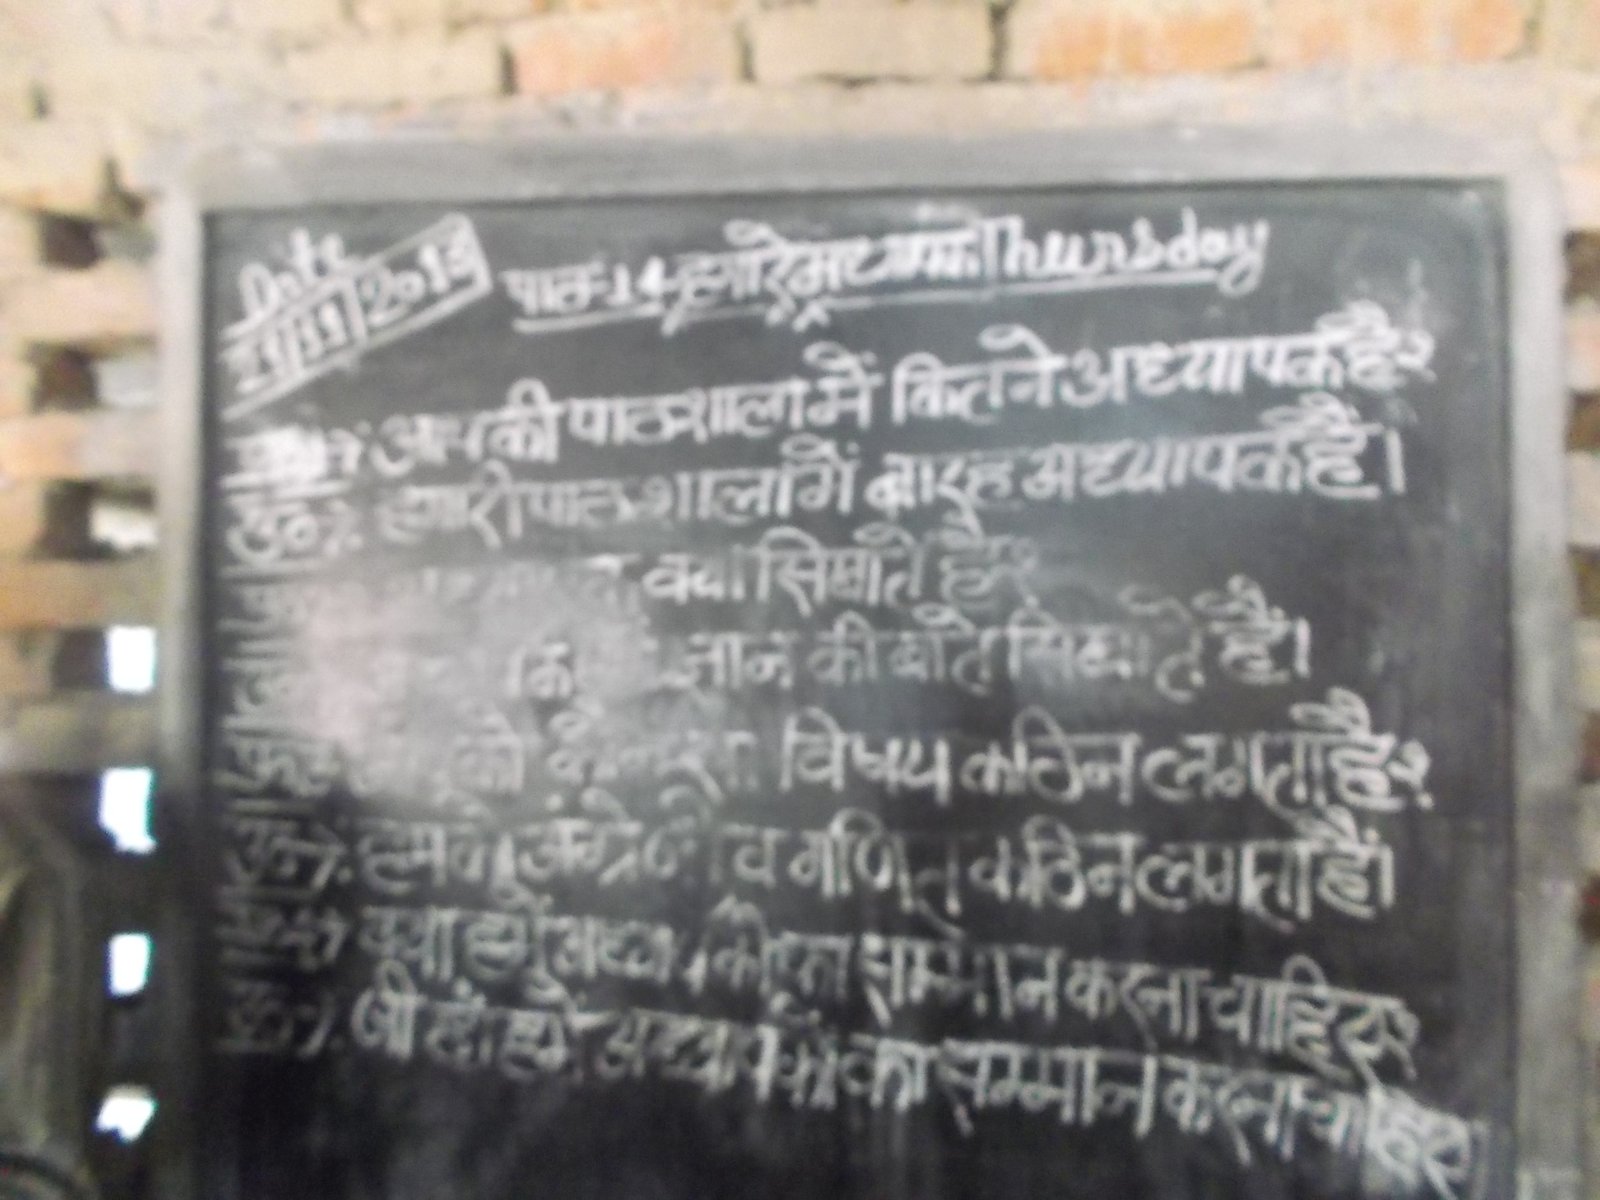 Date 21/11/2013 पाठ-14 हमारे अध्यापक Thursday
आपकी पाठशाला में कितने अध्यापक हैं?
उत्तर: हमारी पाठशाला में बारह अध्यापक हैं।
क्या सिखाते हैं?
ज्ञान की बातें सिखाते हैं।
को विषय कठिन लगता है?
उत्तर: हमको अंग्रेजी व गणित कठिन लगता है।
क्या हमें अध्यापकों का सम्मान करना चाहिए?
जी हां हमें अध्यापकों का सम्मान करना चाहिए